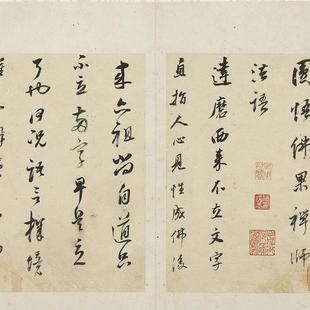 圓悟佛果禪師
法語
達磨西來不立文字
直指人心見性成佛後
來六祖尚自道只
不立兩字早是立
了也何況語言機境